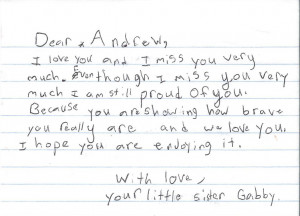 Dear Andrew,
I love you and I miss you very
much. Even though I miss you very
much I am still proud of you.
Because you are showing how brave
you really are and we love you.
I hope you are endying it.
With love,
your little sister Gabby.